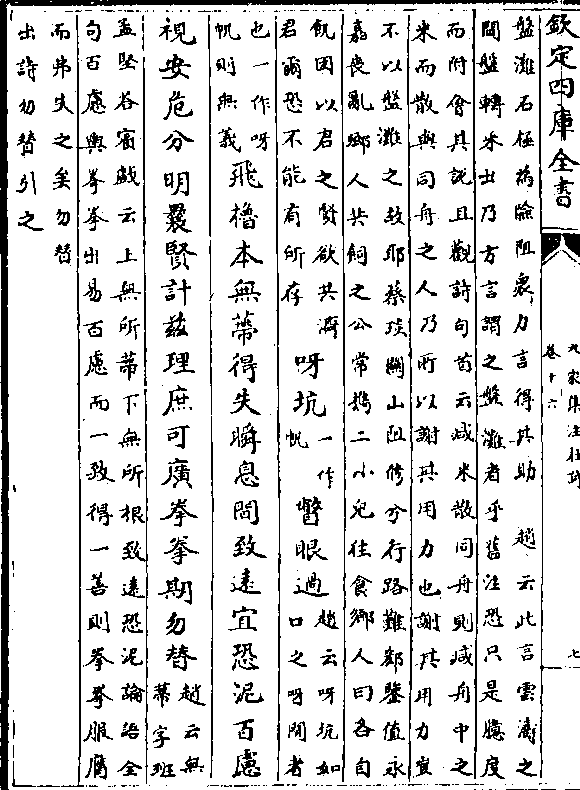 欽定四庫全書
九家集注杜詩
卷十六
七
盤灘石極為險阻衆力言得其助 趙云此言雲濤之
間盤轉米出乃方言謂之盤灘者乎舊注恐只是臆度
而附會其說且觀詩句首云减米散同舟則减舟中之
米而散與同舟之人乃所以謝其用力也謝其用力豈
不以盤灘之故耶蔡琰關山阻修兮行路難郗鑒值永
嘉喪亂鄉人共飼之公常攜二小兒往食鄉人曰各自
飢困以君之賢欲共濟
君爾恐不能有所存
呀坑
一作
帆
瞥眼過
趙云呀坑如
口之呀開者
也一作呀
帆則無義
飛櫓本無蒂得失瞬息間致遠宜恐泥百慮
視安危分明曩賢計茲理庶可廣拳拳期勿替
趙云無
蒂字班
孟堅答賓戲云上無所蒂下無所根致遠恐泥論語全
句百慮輿拳拳出易百慮而一致得一善則拳拳服膺
而弗失之矣勿替
出詩勿替引之